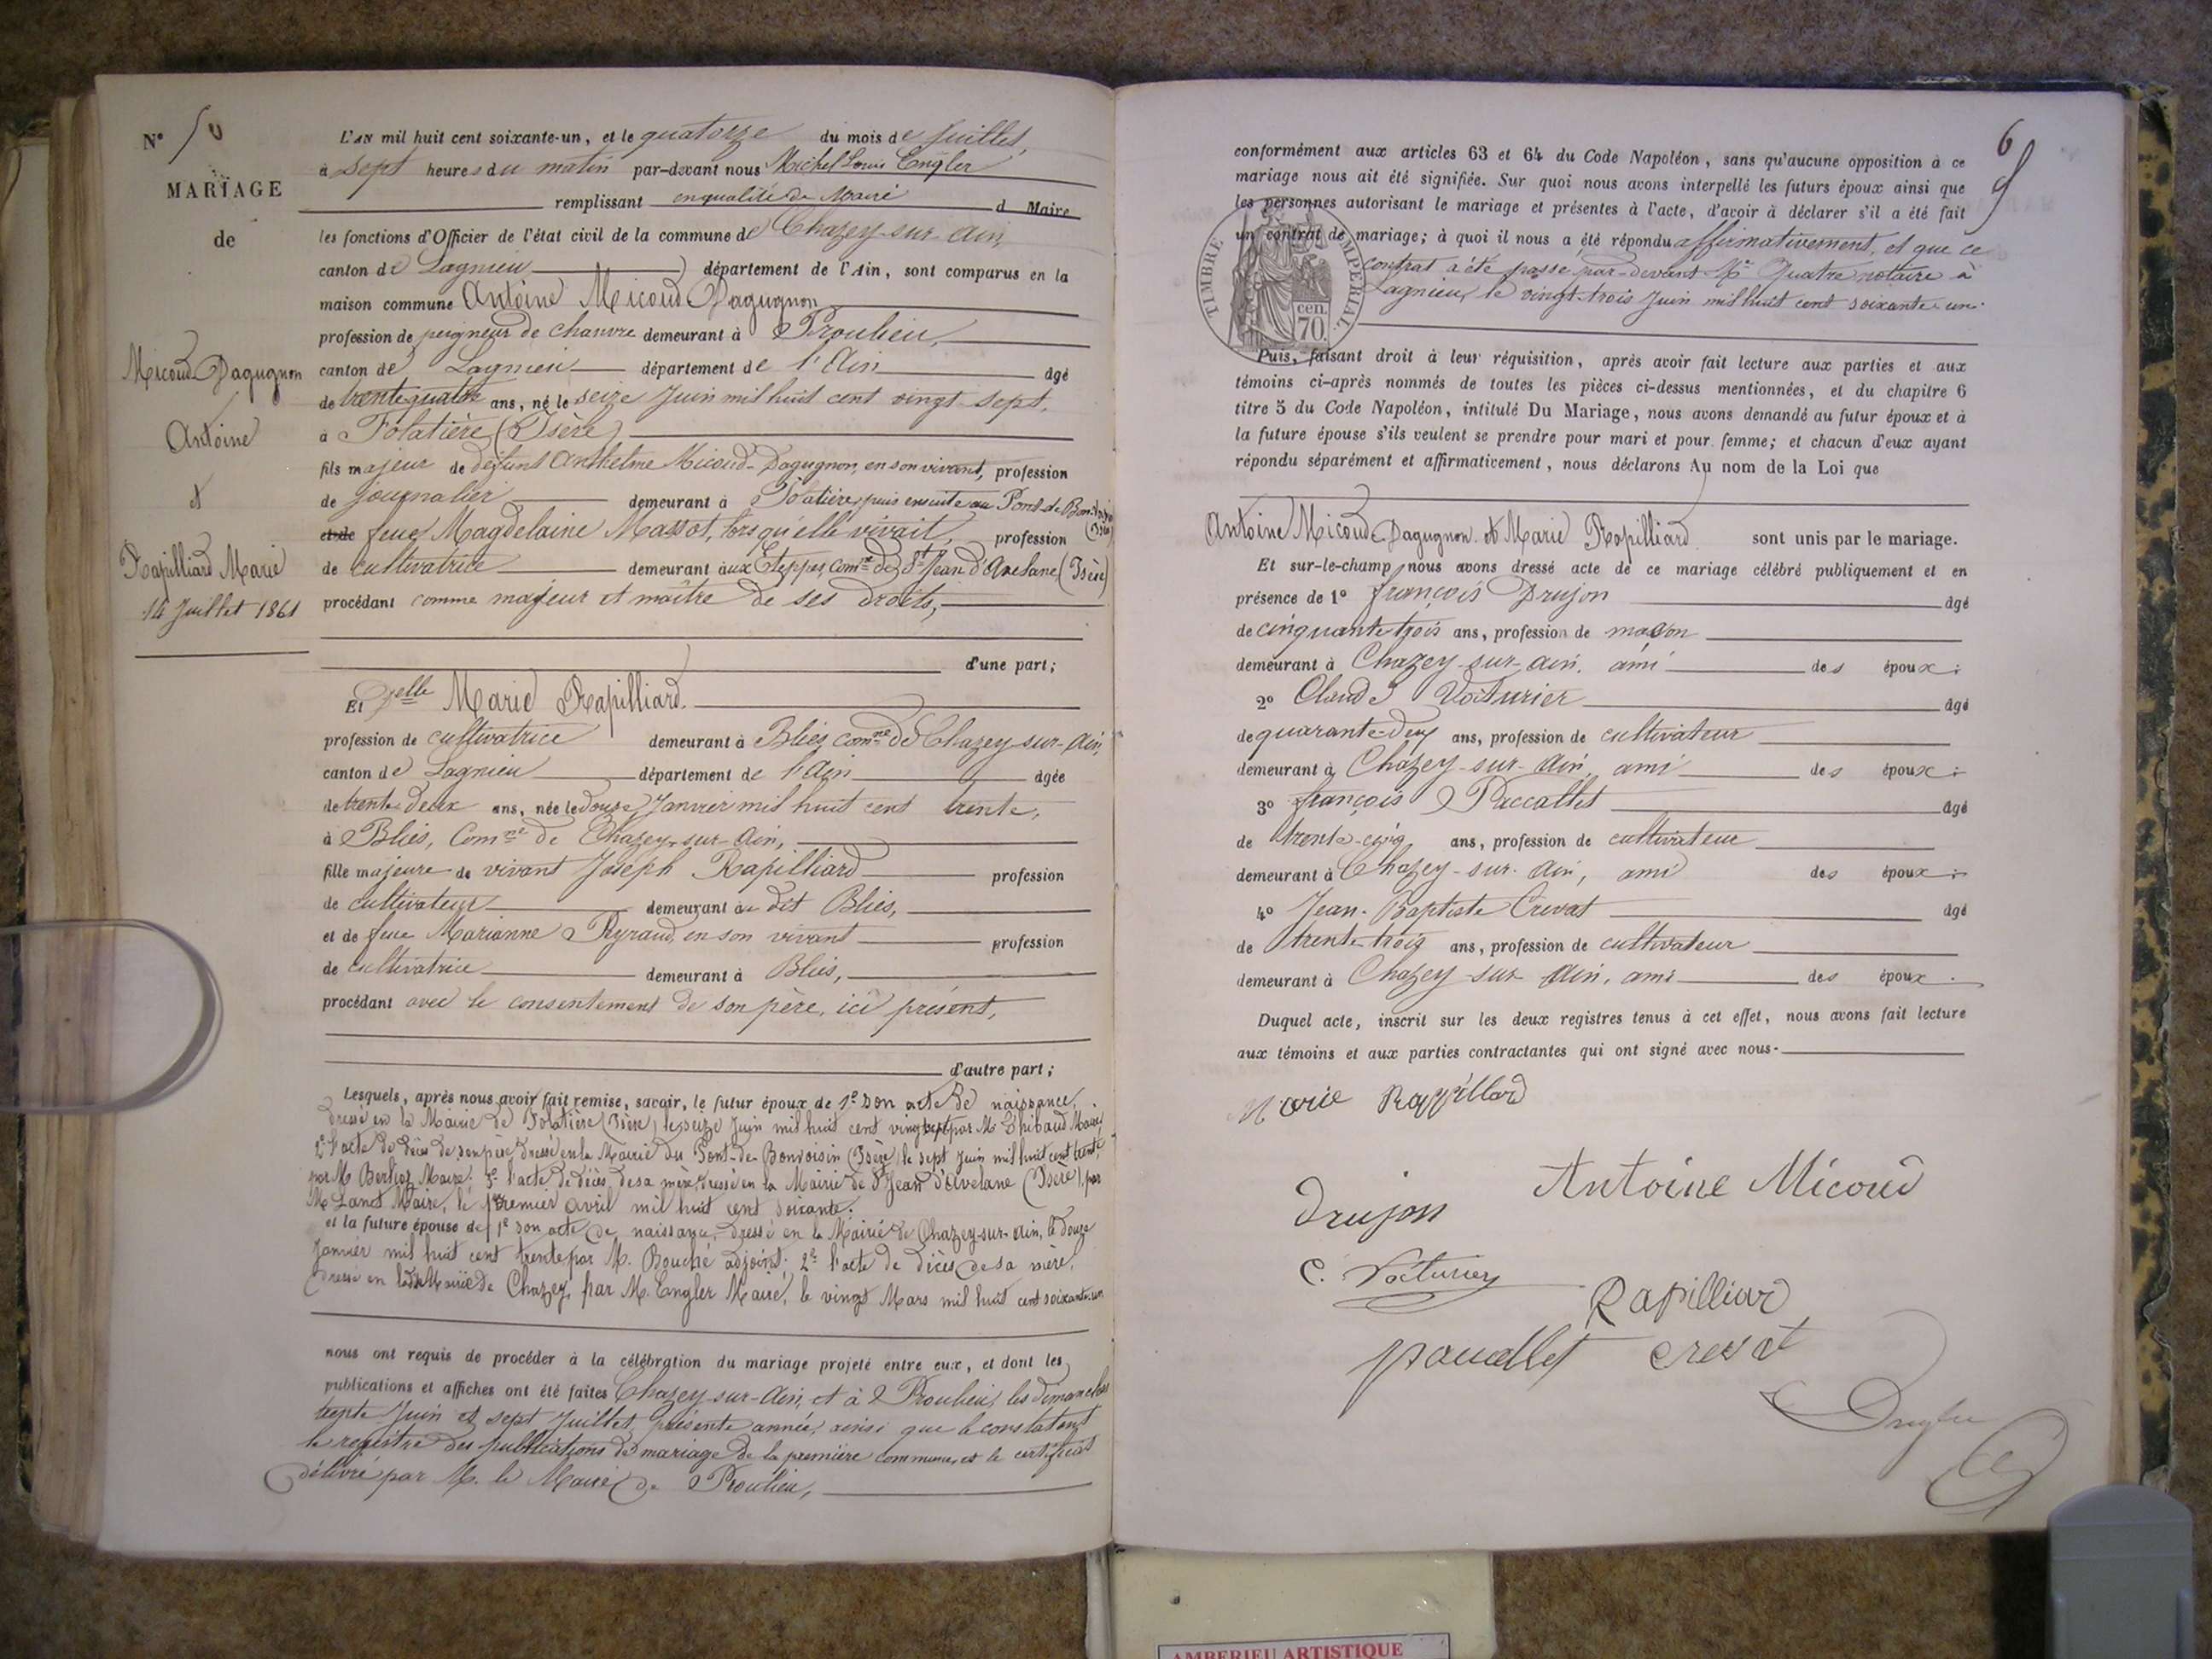 N° 10
MARIAGE
de
Micoud-Dagugnon
Antoine
&
Rapilliard Marie
14 Juillet 1861
L'AN mil huit cent soixante-un, et le quatorze du mois de Juillet,
à sept heures du matin par-devant nous Michel Louis Engler
remplissant en qualité de Maire d Maire
les fonctions d'Officier de l'état civil de la commune de Chazey-sur-Ain,
canton de Lagnieu département de l'Ain, sont comparus en la
maison commune Antoine Micoud-Dagugnon
profession de peigneur de chanvre demeurant à Proulieu,
canton de Lagnieu département de l'Ain âgé
de trente quatre ans, né le seize Juin mil huit cent vingt-sept,
à Folatière (Isère)
fils majeur de défunt Anthelme Micoud-Dagugnon, en son vivant, profession
de journalier demeurant à Folatière, puis ensuite au Pont-de-Bonvoisin (Isère)
et de feue Magdelaine Massot, lorsqu'elle vivait, profession
de cultivatrice demeurant aux Eteppes, comne de St Jean d'Avelane (Isère)
procédant comme majeur et maître de ses droits,
d'une part;
Et Delle Marie Rapilliard
profession de cultivatrice demeurant à Blies, comne de Chazey-sur-Ain,
canton de Lagnieu département de l'Ain âgée
de trente-deux ans, née le douze Janvier mil huit cent trente,
à Blies, Comne de Chazey-sur-Ain,
fille majeure de vivant Joseph Rapilliard profession
de cultivateur demeurant au dit Blies,
et de feue Marianne Peyraud, en son vivant profession
de cultivatrice demeurant à Blies,
procédant avec le consentement de son père, ici présent,
d'autre part;
Lesquels, après nous avoir fait remise, savoir, le futur époux de 1° son acte de naissance,
dressé en la Mairie de Folatière (Isère), le seize Juin mil huit cent vingt sept par Mr Thibaud Maire;
2° l'acte de décès de son père dressé en la Mairie du Pont-de-Bonvoisin (Isère) le sept Juin mil huit cent trente
par M. Berlioz Maire; 3° l'acte de décès de sa mère, dressé en la Mairie de St Jean d'Avelane (Isère), par
Mr Lanet Maire, le premier avril mil huit cent soixante.
et la future épouse de 1° son acte de naissance, dressé en la Mairie de Chazey-sur-Ain, le douze
Janvier mil huit cent trente par M. Bouché adjoint; 2° l'acte de décès de sa mère,
dressé en la dite Mairie de Chazey, par M. Engler Maire, le vingt Mars mil huit cent soixante-un
nous ont requis de procéder à la célébration du mariage projeté entre eux, et dont les
publications et affiches ont été faites Chazey-sur-Ain, et à Proulieu, les dimanches
trente Juin et sept Juillet, présente année, ainsi que le constatent
le registre des publications de mariage de la première commune, et le certificat
délivré par M. le Maire de Proulieu,
6
conformément aux articles 63 et 64 du Code Napoléon, sans qu'aucune opposition à ce
mariage nous ait été signifiée. Sur quoi nous avons interpellé les futurs époux ainsi que
les personnes autorisant le mariage et présentes à l'acte, d'avoir à déclarer s'il a été fait
un contrat de mariage; à quoi il nous a été répondu affirmativement, et que ce
contrat a été passé par-devant Me Quatre notaire à
Lagnieu, le vingt-trois Juin mil huit cent soixante-un.
TIMBRE IMPERIAL
cen. 70.
Puis, faisant droit à leur réquisition, après avoir fait lecture aux parties et aux
témoins ci-après nommés de toutes les pièces ci-dessus mentionnées, et du chapitre 6
titre 5 du Code Napoléon, intitulé Du Mariage, nous avons demandé au futur époux et à
la future épouse s'ils veulent se prendre pour mari et pour femme; et chacun d'eux ayant
répondu séparément et affirmativement, nous déclarons Au nom de la Loi que
Antoine Micoud-Dagugnon & Marie Rapilliard sont unis par le mariage.
Et sur-le-champ nous avons dressé acte de ce mariage célébré publiquement et en
présence de 1° françois Drujon âgé
de cinquante trois ans, profession de maçon
demeurant à Chazey-sur-Ain, ami des époux;
2° Claude Voiturier âgé
de quarante-deux ans, profession de cultivateur
demeurant à Chazey-sur-Ain, ami des époux;
3° françois Paccallet âgé
de trente-cinq ans, profession de cultivateur
demeurant à Chazey-sur-Ain, ami des époux;
4° Jean-Baptiste Crevat âgé
de trente-trois ans, profession de cultivateur
demeurant à Chazey-sur-Ain, ami des époux.
Duquel acte, inscrit sur les deux registres tenus à cet effet, nous avons fait lecture
aux témoins et aux parties contractantes qui ont signé avec nous.
Marie Rapillard
Antoine Micoud
Drujon
C. Voiturier
Rapilliard
paucallet crevat
AMBERIEU ARTISTIQUE